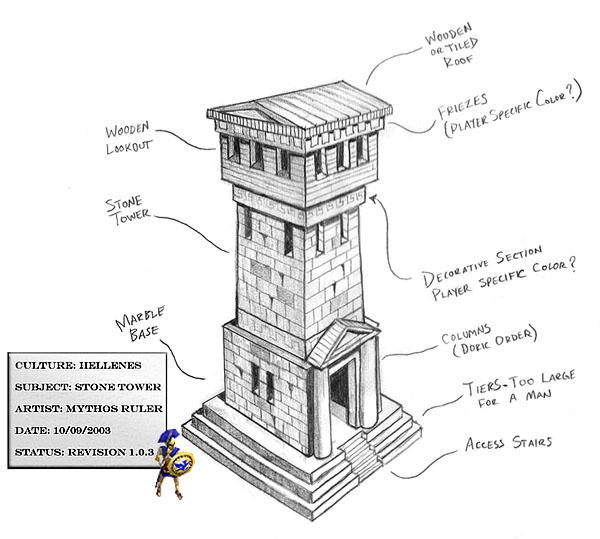 WOODEN
OR TILED
ROOF
FRIEZES
(PLAYER SPECIFIC COLOR?)
WOODEN
LOOKOUT
STONE
TOWER
DECORATIVE SECTION
PLAYER SPECIFIC COLOR?
MARBLE
BASE
COLUMNS
(DORIC ORDER)
TIERS-TOO LARGE
FOR A MAN
ACCESS STAIRS
CULTURE: HELLENES
SUBJECT: STONE TOWER
ARTIST: MYTHOS RULER
DATE: 10/09/2003
STATUS: REVISION 1.0.3